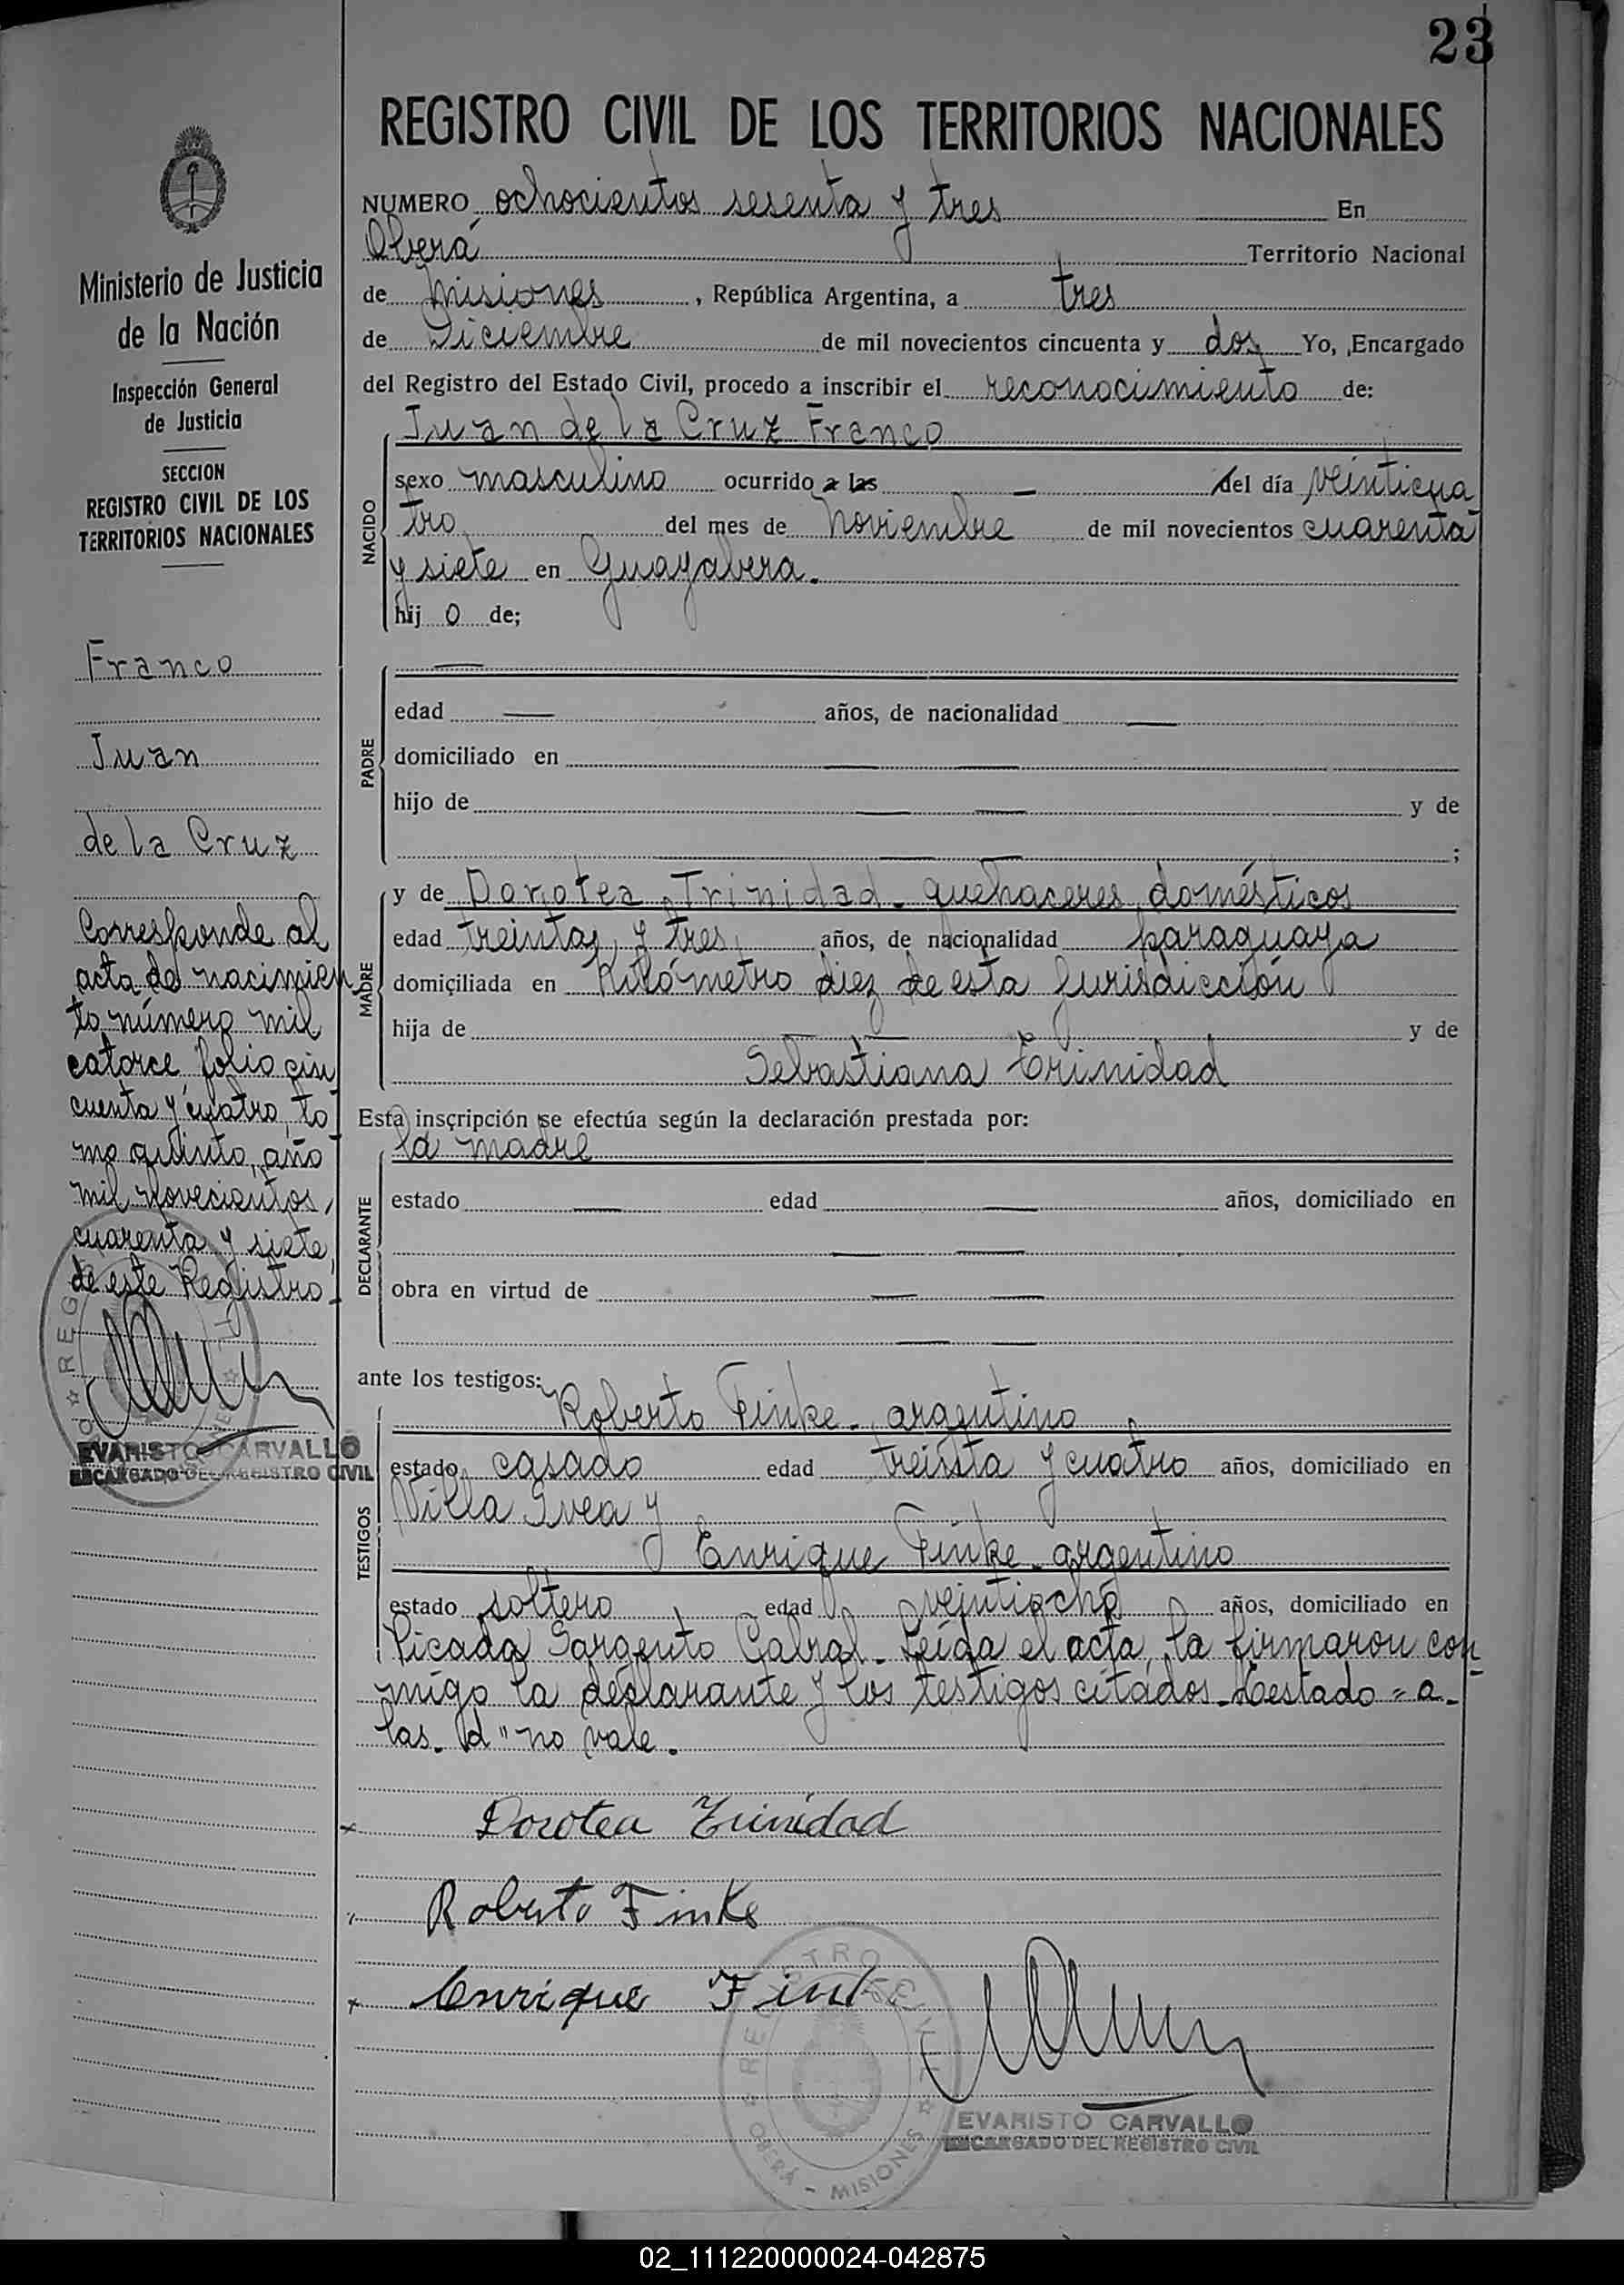 23
REGISTRO CIVIL DE LOS TERRITORIOS NACIONALES
NUMERO ochocientos sesenta y tres En
Oberá Territorio Nacional
de Misiones, República Argentina, a tres
de Diciembre de mil novecientos cincuenta y dos Yo, Encargado
del Registro del Estado Civil, procedo a inscribir el reconocimiento de:
NACIDO
Juan de la Cruz Franco
sexo masculino ocurrido a las — del día veinticua
tro del mes de Noviembre de mil novecientos cuarenta
y siete en Guayabera.
hij o de;
PADRE
—
edad — años, de nacionalidad —
domiciliado en — —
hijo de — — y de
— — ;
MADRE
y de Dorotea Trinidad - quehaceres domésticos
edad treinta y tres años, de nacionalidad paraguaya
domiciliada en Kilómetro diez de esta jurisdicción
hija de — — y de
Sebastiana Trinidad
Esta inscripción se efectúa según la declaración prestada por:
DECLARANTE
la madre
estado — edad — años, domiciliado en
— —
obra en virtud de — —
— —
ante los testigos:
TESTIGOS
Roberto Finke - argentino
estado casado edad treinta y cuatro años, domiciliado en
Villa Svea y
Enrique Finke - argentino
estado soltero edad veintiocho años, domiciliado en
Picada Sargento Cabral - Leída el acta, la firmaron con
migo la declarante y los testigos citados - Testado = a -
las - d" no vale.
Dorotea Trinidad
Roberto Finke
Enrique Finke
REGISTRO CIVIL
OBERÁ - MISIONES
EVARISTO CARVALLO
ENCARGADO DEL REGISTRO CIVIL
Ministerio de Justicia
de la Nación
Inspección General
de Justicia
SECCION
REGISTRO CIVIL DE LOS
TERRITORIOS NACIONALES
Franco
Juan
de la Cruz
Corresponde al
acta de nacimien
to número mil
catorce folio cin
cuenta y cuatro, to
mo quinto, año
mil novecientos
cuarenta y siete,
de este Registro
EVARISTO CARVALLO
ENCARGADO DEL REGISTRO CIVIL
02_111220000024-042875